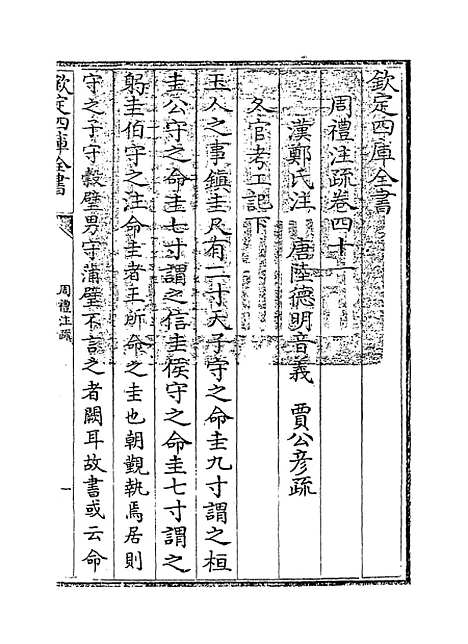 欽定四庫全書
周禮注疏卷四十一
漢鄭氏注　唐陸德明音義　賈公彥疏
冬官考工記下
玉人之事鎮圭尺有二寸天子守之命圭九寸謂之桓
圭公守之命圭七寸謂之信圭侯守之命圭七寸謂之
躬圭伯守之注命圭者王所命之圭也朝覲執焉居則
守之子守穀璧男守蒲璧不言之者闕耳故書或云命
欽定四庫全書
周禮注疏
一